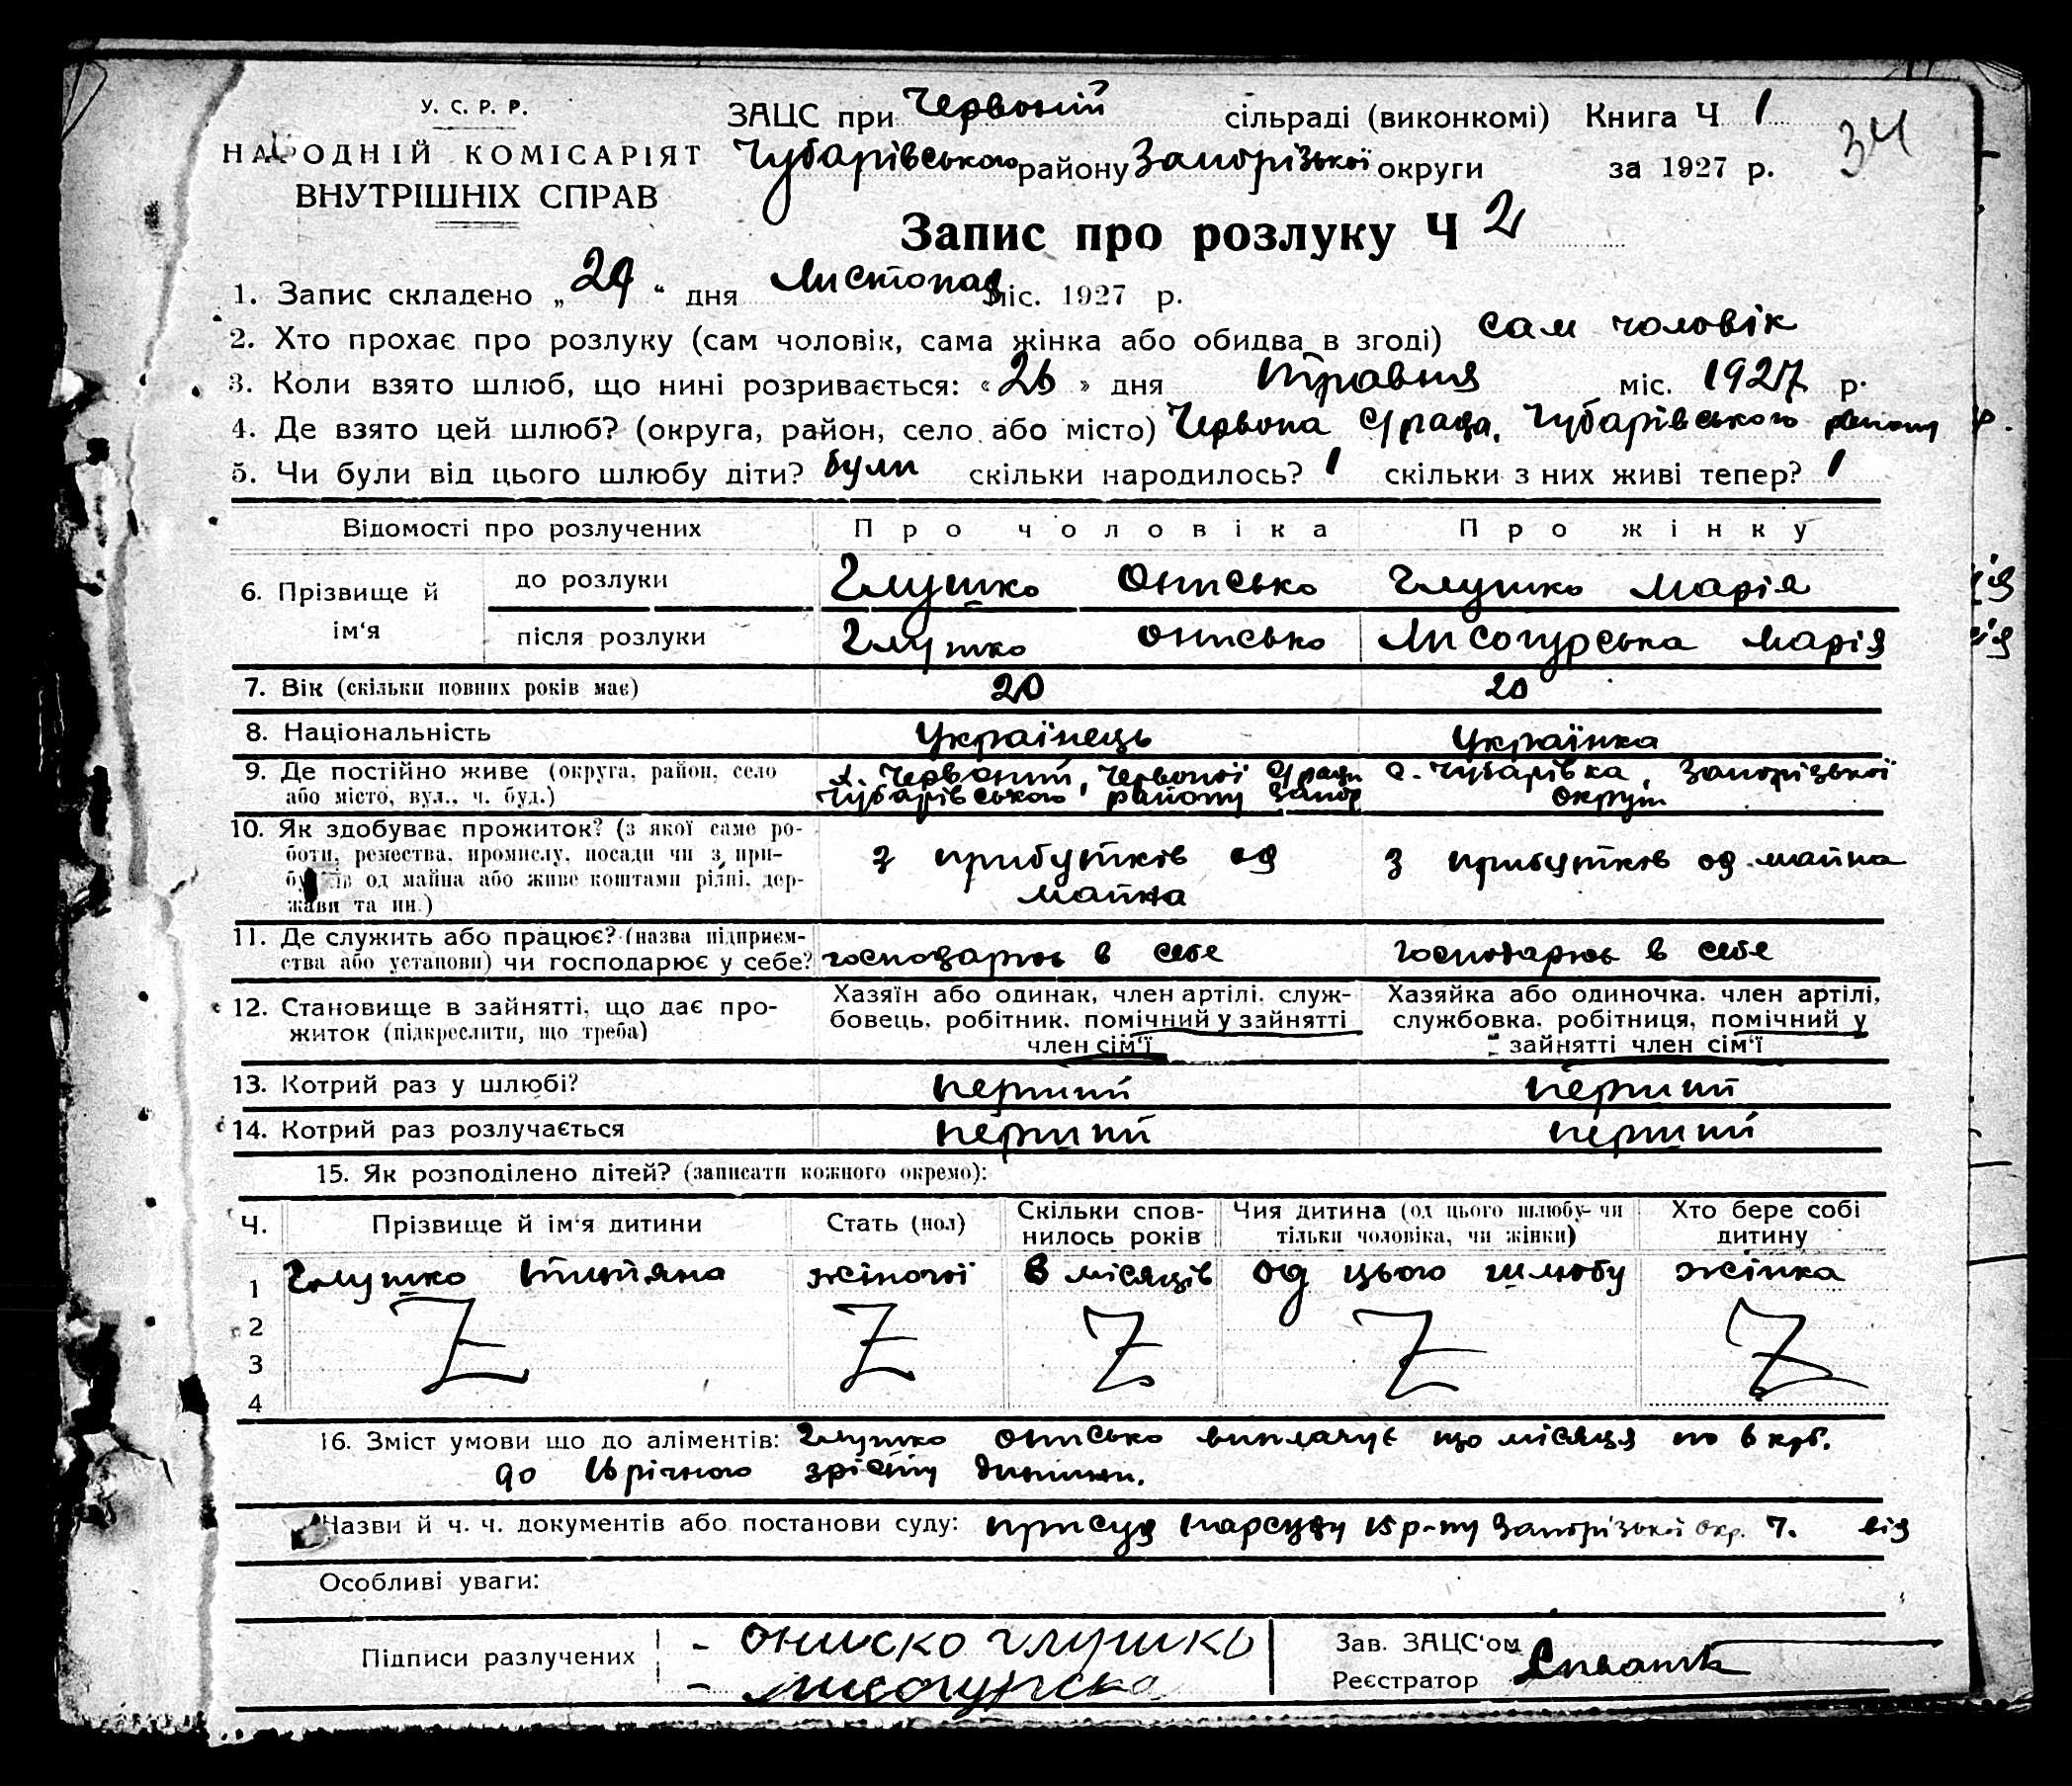 У. С. Р. Р.
НАРОДНІЙ КОМІСАРІЯТ
ВНУТРІШНІХ СПРАВ
ЗАЦС при Червоній сільраді (виконкомі) Книга Ч 1
Чубарівського району Запорізької округи за 1927 р.
34
Запис про розлуку Ч 2
1. Запис складено „29“ дня Листопад міс. 1927 р.
2. Хто прохає про розлуку (сам чоловік, сама жінка або обидва в згоді) сам чоловік
3. Коли взято шлюб, що нині розривається: «26» дня травня міс. 1927 р.
4. Де взято цей шлюб? (округа, район, село або місто) Червона С/рада, Чубарівського району
5. Чи були від цього шлюбу діти? були скільки народилось? 1 скільки з них живі тепер? 1
Відомості про розлучених Про чоловіка Про жінку
6. Прізвище й ім'я до розлуки Глушко Онисько Глушко Марія
після розлуки Глушко Онисько Лисогурська Марія
7. Вік (скільки повних років має) 20 20
8. Національність Українець Українка
9. Де постійно живе (округа, район, село або місто, вул., ч. буд.)
х. Червоний, Червоної С/ради
Чубарівського району Запор
с. Чубарівка, Запорізької
округи
10. Як здобуває прожиток? (з якої саме ро-
боти, ремества, промислу, посади чи з при-
бутків од майна або живе коштами рідні, дер-
жави та ин.)
з прибутків од
майна
з прибутків од майна
11. Де служить або працює? (назва підприєм-
ства або установи) чи господарює у себе?
господарює в себе господарює в себе
12. Становище в зайнятті, що дає про-
житок (підкреслити, що треба)
Хазяїн або одинак, член артілі, служ-
бовець, робітник, помічний у зайнятті
член сім'ї
Хазяйка або одиночка, член артілі,
службовка, робітниця, помічний у
зайнятті член сім'ї
13. Котрий раз у шлюбі? перший перший
14. Котрий раз розлучається перший перший
15. Як розподілено дітей? (записати кожного окремо):
Ч. Прізвище й ім'я дитини Стать (пол) Скільки спов-нилось років Чия дитина (од цього шлюбу чи тільки чоловіка, чи жінки) Хто бере собі дитину
1 Глушко Титяна жіночої 8 місяців од цього шлюбу жінка
2
3
4
16. Зміст умови що до аліментів: Глушко Онисько виплачує що місяця по 6 крб.
до 16 річного зрісту дитини.
Назви й ч. ч. документів або постанови суду: присуд Нарсуду 15 р-ну Запорізької окр. від
Особливі уваги:
Підписи разлучених - Ониско Глушко
- лисогурска
Зав. ЗАЦС'ом
Реєстратор